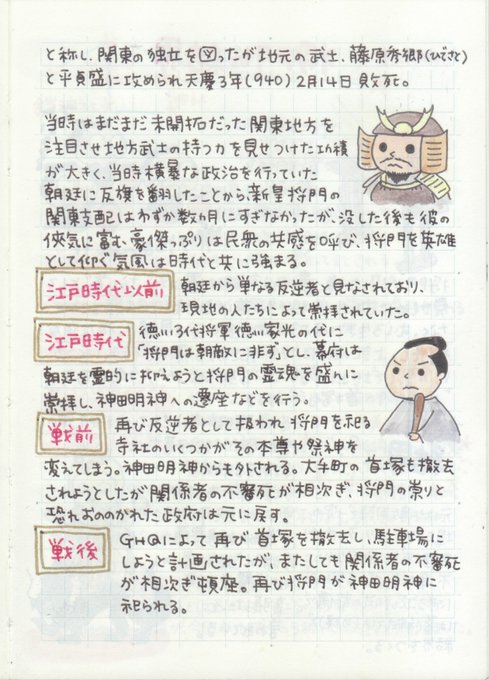 と称し、関東の独立を図ったが地元の武士、藤原秀郷(ひでさと)
と平貞盛に攻められ天慶3年(940)2月14日敗死。
当時はまだまだ未開拓だった関東地方を
注目させ地方武士の持つ力を見せつけた功績
が大きく、当時横暴な政治を行っていた
朝廷に反旗を翻したことから、新皇将門の
関東支配はわずか数カ月にすぎなかったが、没した後も彼の
侠気に富む豪傑っぷりは民衆の共感を呼び、将門を英雄
として仰ぐ気風は時代と共に強まる。
江戸時代以前
朝廷から単なる反逆者と見なされており、
現地の人たちによって崇拝されていた。
江戸時代
徳川3代将軍徳川家光の代に
「将門は朝敵に非ず」とし、幕府は
朝廷を霊的に抑えようと将門の霊魂を盛んに
崇拝し、神田明神への遷座などを行う。
戦前
再び反逆者として扱われ将門を祀る
寺社のいくつかがその本尊や祭神を
変えてしまう。神田明神からも外される。大手町の首塚も撤去
されようとしたが関係者の不審死が相次ぎ、将門の祟りと
恐れおののかれた政府は元に戻す。
戦後
GHQによって再び首塚を撤去し、駐車場に
しようと計画されたが、またしても関係者の不審死
が相次ぎ頓座。再び将門が神田明神に
祀られる。